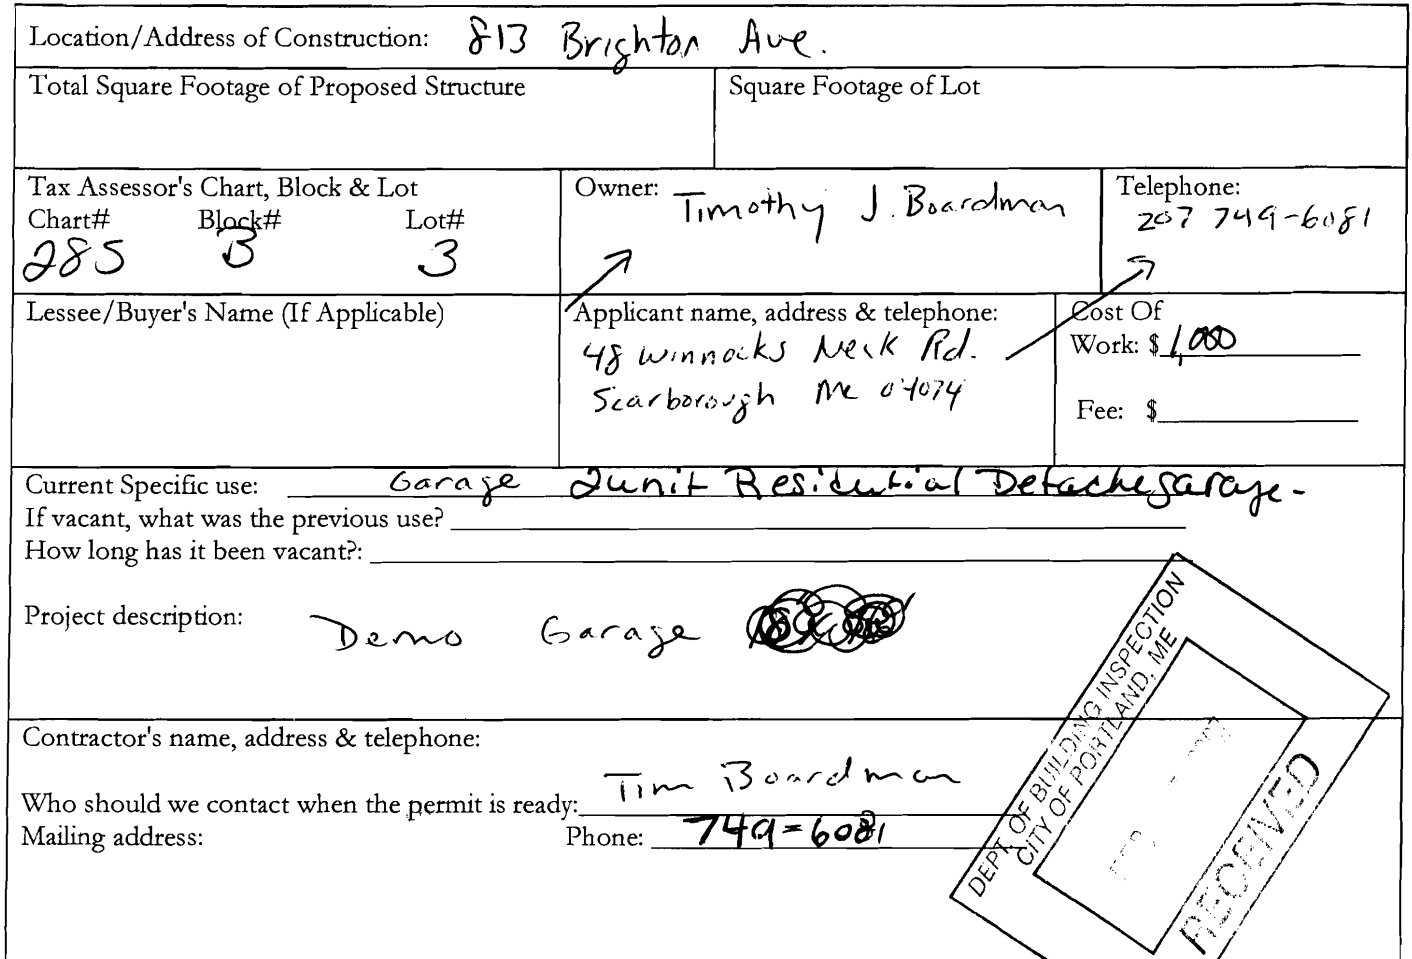 Location/Address of Construction: 813 Brighton Ave.
Total Square Footage of Proposed Structure
Square Footage of Lot
Tax Assessor's Chart, Block & Lot
Chart# Block# Lot#
285 B 3
Owner: Timothy J. Boardman
Telephone:
207 749-6081
Lessee/Buyer's Name (If Applicable)
Applicant name, address & telephone:
48 Winnocks Neck Rd.
Scarborough Me 04074
Cost Of
Work: $ 1,000
Fee: $
Current Specific use: Garage 2unit Residential Detache garage-
If vacant, what was the previous use?
How long has it been vacant?:
Project description: Demo Garage
Contractor's name, address & telephone:
Who should we contact when the permit is ready: Tim Boardman
Mailing address: Phone: 749=6081
DEPT. OF BUILDING INSPECTION
CITY OF PORTLAND, ME
RECEIVED